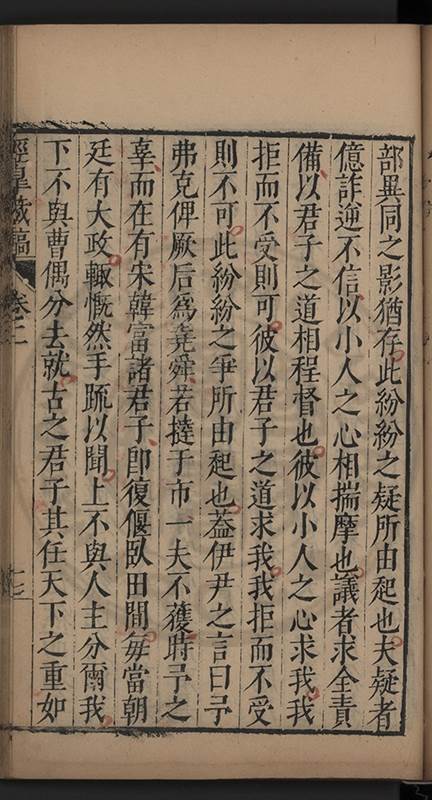 部異同之影猶存此紛紛之疑所由起也夫疑者
億詐逆不信以小人之心相揣摩也議者求全責
備以君子之道相程督也彼以小人之心求我我
拒而不受則可彼以君子之道求我我拒而不受
則不可此紛紛之爭所由起也蓋伊尹之言曰予
弗克俾厥后爲堯舜若撻于市一夫不獲時予之
辜而在有宋韓富諸君子卽復偃臥田間每當朝
廷有大政輙慨然手䟽以聞上不與人主分爾我
下不與曹偶分去就古之君子其任天下之重如
涇皐藏稿
卷二
十三